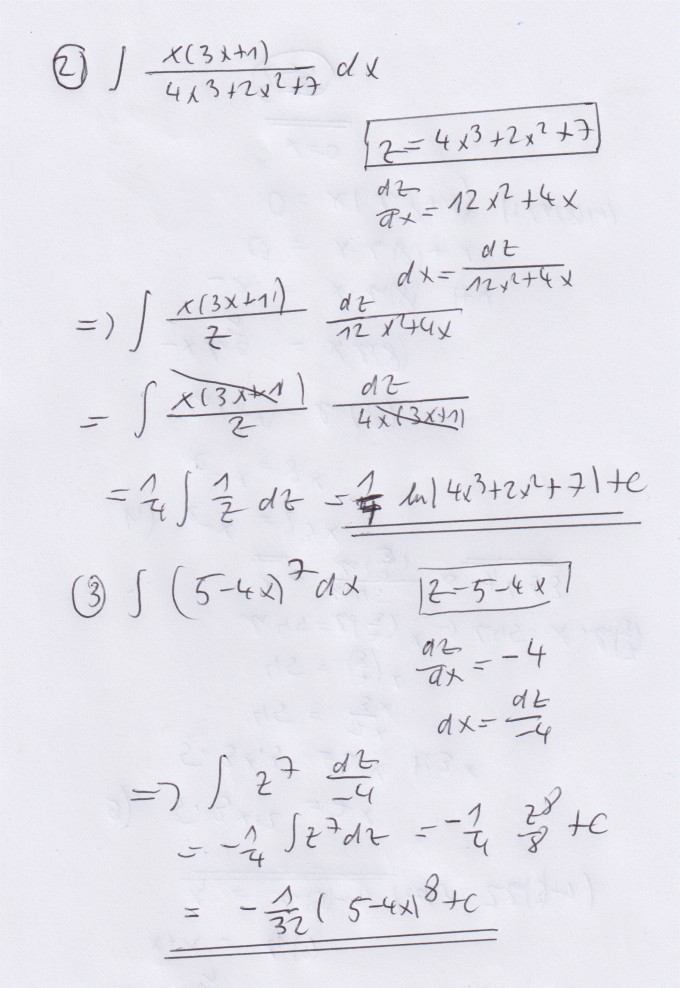 ② ∫ x(3x+1)/(4x³+2x²+7) dx
z=4x³+2x²+7
dz/dx=12x²+4x
dx=dz/(12x²+4x)
=> ∫ x(3x+1)/z dz/(12x²+4x)
= ∫ x(3x+1)/z dz/(4x(3x+1))
=1/4 ∫ 1/z dz =1/4 ln|4x³+2x²+7|+c
③ ∫ (5-4x)⁷dx z=5-4x
dz/dx=-4
dx=dz/-4
=> ∫ z⁷ dz/-4
= -1/4 ∫z⁷dz = -1/4 z⁸/8 +c
= -1/32 (5-4x)⁸+c